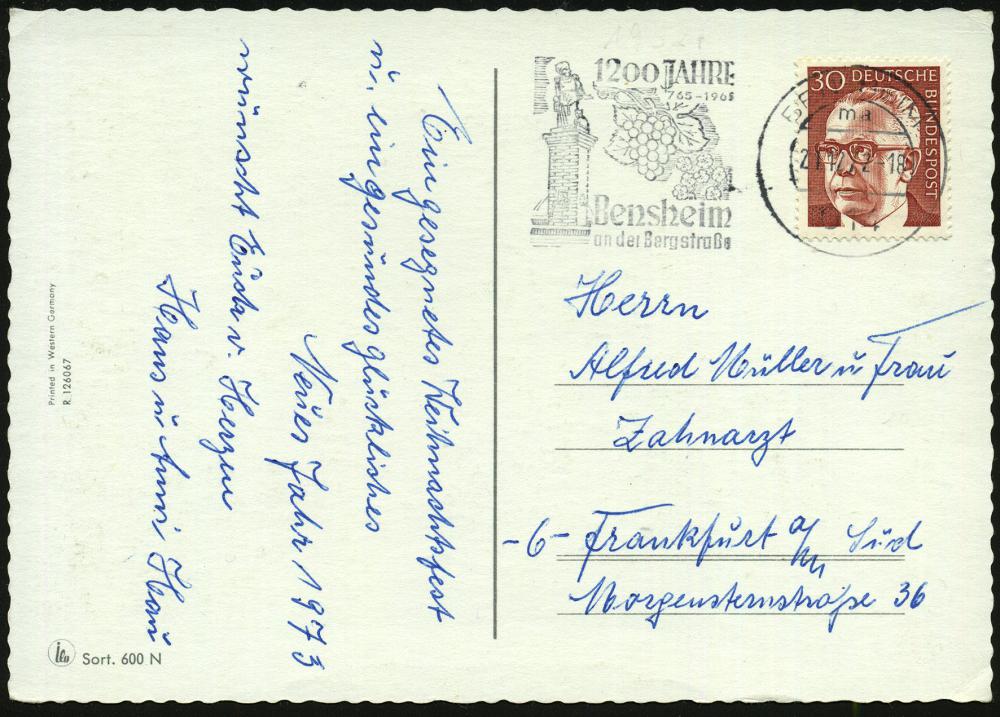 Ein gesegnetes Weihnachtsfest
u. ein gesundes glückliches
Neues Jahr 1973
wünscht Euch v. Herzen
Hans u. Anni Hau
Printed in Western Germany
R. 126067
Sort. 600 N
1200 JAHRE
765-1965
Bensheim
an der Bergstraße
30 DEUTSCHE
BUNDESPOST
ma
-18
Herrn
Alfred Müller u Frau
Zahnarzt
-6- Frankfurt a/M Süd
Morgensternstraße 36